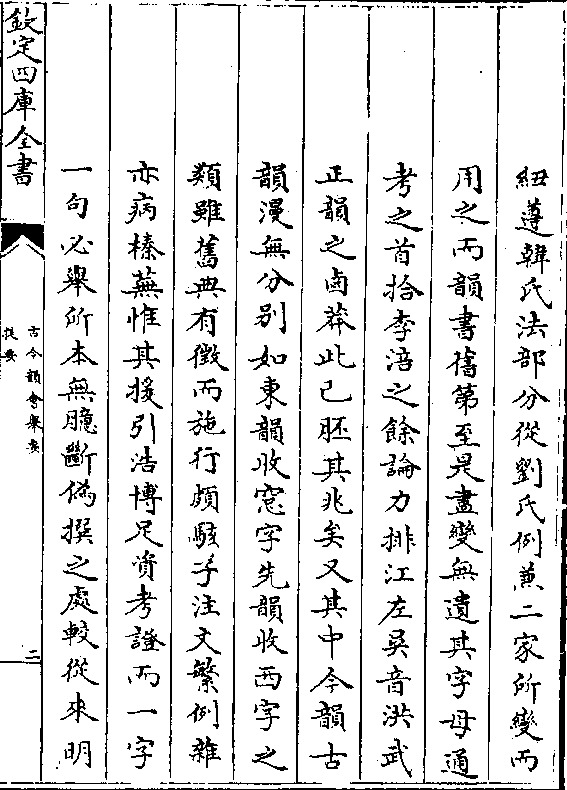 紐遵韓氏法部分從劉氏例兼二家所變而
用之而韻書舊第至是盡變無遺其字母通
考之首拾李涪之餘論力排江左吳音洪武
正韻之鹵莽此已胚其兆矣又其中今韻古
韻漫無分別如東韻收窓字先韻收西字之
類雖舊典有徵而施行頗駭子注文繁例雜
亦病榛蕪惟其援引浩博足資考證而一字
一句必舉所本無臆斷偽撰之處較從來明
欽定四庫全書
古今韻會舉要
提要
二